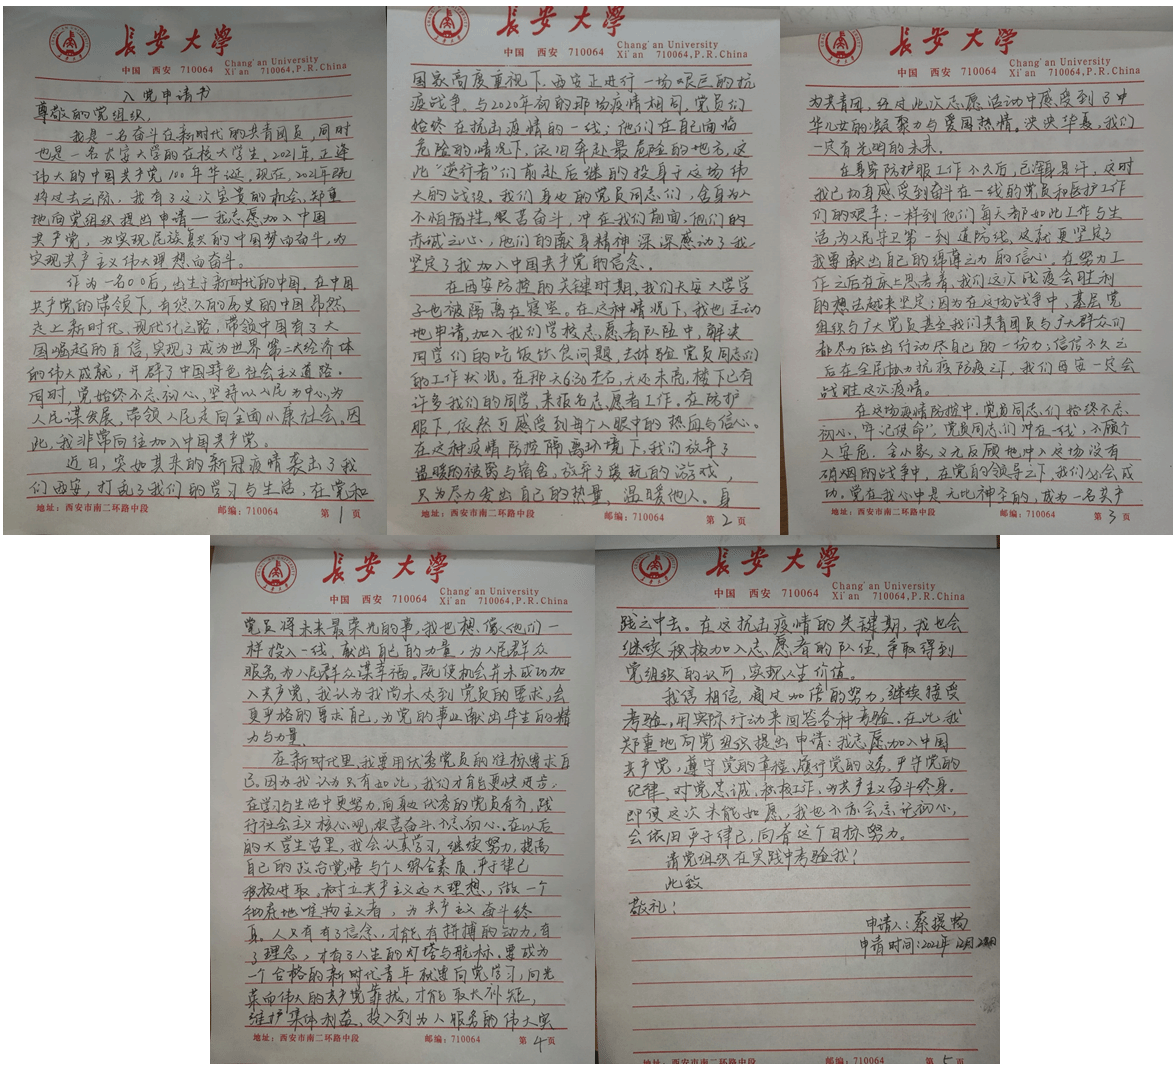 長安大學
中国 西安 710064 Chang'an University
Xi'an 710064,P.R.China
入党申请书
尊敬的党组织,
我是一名奋斗在新时代的共青团员,同时
也是一名长安大学的在校大学生。2021年,正逢
伟大的中国共产党100年华诞,现在,2021年既
将过去之际,我有了这次宝贵的机会,郑重
地向党组织提出申请——我志愿加入中国
共产党,为实现民族复兴的中国梦而奋斗,为
实现共产主义伟大理想而奋斗。
作为一名00后,出生于新时代的中国,在中国
共产党的带领下,有悠久的历史的中国昂然
走上新时代、现代化之路,带领中国有了大
国崛起的自信,实现了成为世界第二大经济体
的伟大成就,开辟了中国特色社会主义道路。
同时,党始终不忘初心,坚持以人民为中心,为
人民谋发展,带领人民走向全面小康社会。因
此,我非常向往加入中国共产党。
近日,突如其来的新冠疫情袭击了我
们西安,打乱了我们的学习与生活,在党和
地址:西安市南二环路中段 邮编:710064 第1页
長安大學
中国 西安 710064 Chang'an University
Xi'an 710064,P.R.China
国家高度重视下,西安正进行一场艰巨的抗
疫战争。与2020年初的那场疫情相同,党员们
始终在抗击疫情的一线;他们在自己面临
危险的情况下,依旧奔赴最危险的地方,这
些"逆行者"们前赴后继的投身于这场伟
大的战役。我们身边的党员同志们,舍身为人
不怕牺牲,艰苦奋斗,冲在我们前面,他们的
赤诚之心,他们的献身精神深深感动了我,
坚定了我加入中国共产党的信念。
在西安防控的关键时期,我们长安大学学
子也被隔离在寝室。在这种情况下,我也主动
地申请加入我们学校志愿者队伍中,解决
同学们的吃饭饮食问题,去体验党员同志们
的工作状况。在那天6:30左右,天还未亮,楼下已有
许多我们的同学,来报名志愿者工作。在防护
服下,依然可感受到每个人眼中的热血与信心。
在这种疫情防控隔离环境下,我们放弃了
温暖的被窝与宿舍,放弃了爱玩的游戏,
只为尽力发出自己的热量,温暖他人。身
地址:西安市南二环路中段 邮编:710064 第2页
長安大學
中国 西安 710064 Chang'an University
Xi'an 710064,P.R.China
为共青团,经过此次志愿活动中感受到了中
华儿女的凝聚力与爱国热情。泱泱华夏,我们
一定有光明的未来。
在身穿防护服工作不久后,已汗,这时
我已切身感受到奋斗在一线的党员和医护工作
们的艰辛;一样到他们每天都如此工作与生
活,为人民守卫第一到道防线,这就更坚定了
我要献出自己的绵薄之力的信心,在努力工
作之后在床上思考着,我们这次战疫会胜利
的想法越来坚定;因为在这场战争中,基层党
组织与广大党员甚至我们共青团员与广大群众们
都尽力做出行动尽自己的一份力,信信不久之
后在全民协力抗疫防疫之下,我们西安一定会
战胜这次疫情。
在这场疫情防控中,党员同志们始终不忘
初心、牢记使命",党员同志们冲在一线,不顾个
人安危、舍小家,义无反顾地冲入这场没有
硝烟的战争中,在党的领导之下,我们必会成
功。党在我心中是无比神圣的,成为一名共产
地址:西安市南二环路中段 邮编:710064 第3页
長安大學
中国 西安 710064 Chang'an University
Xi'an 710064,P.R.China
党员将未来最荣光的事,我也想像他们一
样投入一线,献出自己的力量,为人民群众
服务,为人民群众谋幸福。既使机会并未成功加
入共产党,我认为我尚未达到党员的要求,会
更严格的要求自己,为党的事业献出毕生的精
力与力量。
在新时代里,我要用优秀党员的准标要求自
己。因为我认为只有如此,我们才有能更快进步;
在学习与生活中更努力,向身边优秀的党员看齐,践
行社会主义核心观,艰苦奋斗,不忘初心。在以后
的大学生活里,我会认真学习,继续努力,提高
自己的政治觉悟与个人综合素质,严于律己
积极进取,树立共产主义远大理想,做一个
彻底地唯物主义者,为共产主义奋斗终
身。人只有有了信念,才能有拼搏的动力,有
了理念,才有了人生的灯塔与航标。要成为
一个合格的新时代青年就要向党学习,向光
荣而伟大的共产党靠拢,才能取长补短,
维护集体利益,投入到为人服务的伟大实
地址:西安市南二环路中段 邮编:710064 第4页
長安大學
中国 西安 710064 Chang'an University
Xi'an 710064,P.R.China
践之中去。在这抗击疫情的关键期,我也会
继续积极加入志愿者的队伍,争取得到
党组织的认可,实现人生价值。
我信相信,通过加倍的努力,继续接受
考验,用实际行动来回答各种考验。在此,我
郑重地向党组织提出申请:我志愿加入中国
共产党,遵守党的章程,履行党的义务,严守党的
纪律,对党忠诚,积极工作,为共产主义奋斗终身。
即便这次未能如愿,我也不亦会忘记初心,
会依旧严于律己,向着这个目标努力。
请党组织在实践中考验我!
此致
敬礼!
申请人:蔡振畅
申请时间:2021年12月28日
地址:西安市南二环路中段 邮编:710064 第5页